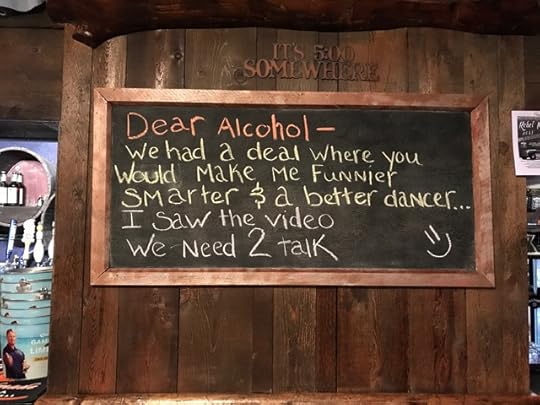 IT'S 5:00
SOMEWHERE
Dear Alcohol –
We had a deal where you
Would Make Me Funnier
SMarter & a better dancer...
I Saw the video
We Need 2 talk
Rebel